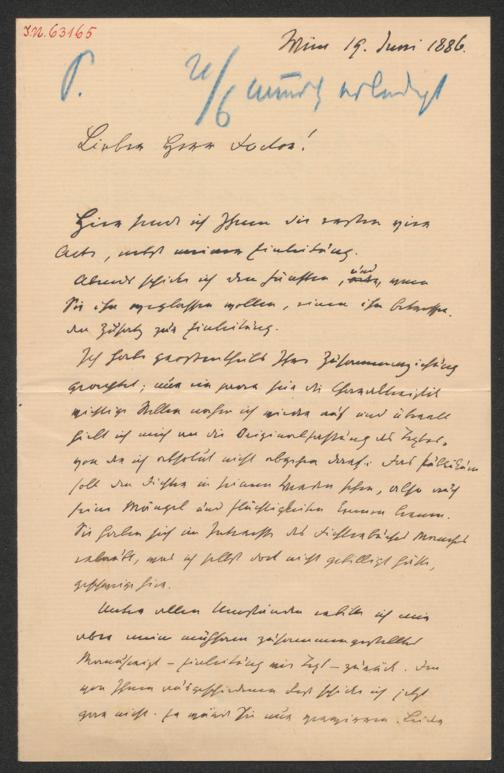 I.N. 63165
Wien 19. Juni 1886.
P. 21/6 mündl erledigt
Lieber Herr Doctor!
Hier sende ich Ihnen die ersten vier
Acte, nebst meiner Einleitung.
Abends schicke ich den fünften, und, wenn
Sie ihn weglassen wollen, einen ihn betreffen-
den Zusatz zur Einleitung.
Ich habe grösstentheils Ihre Zusammenziehung
nur ein paar für die Charakteristik
wichtige Stellen nahm ich wieder auf und überall
hielt ich mich an die Originalfassung des Textes,
von der ich absolut nicht abgehen darf: Das Publikum
soll den Dichter in seinem Werden sehen, also auch
seine Mängel und Flüchtigkeiten kennen lernen.
Sie haben sich im Interesse des Manches
erlaubt, was ich selbst dort nicht gebilligt hätte,
geschweige hier.
Unter allen Umständen erbitte ich mir
aber mein mühsam zusammengestelltes
Manuscript – Einleitung wie Text – zurück. Den
von Ihnen ausgeschiedenen Text schicke ich jetzt
gar nicht. Er würde Sie nur